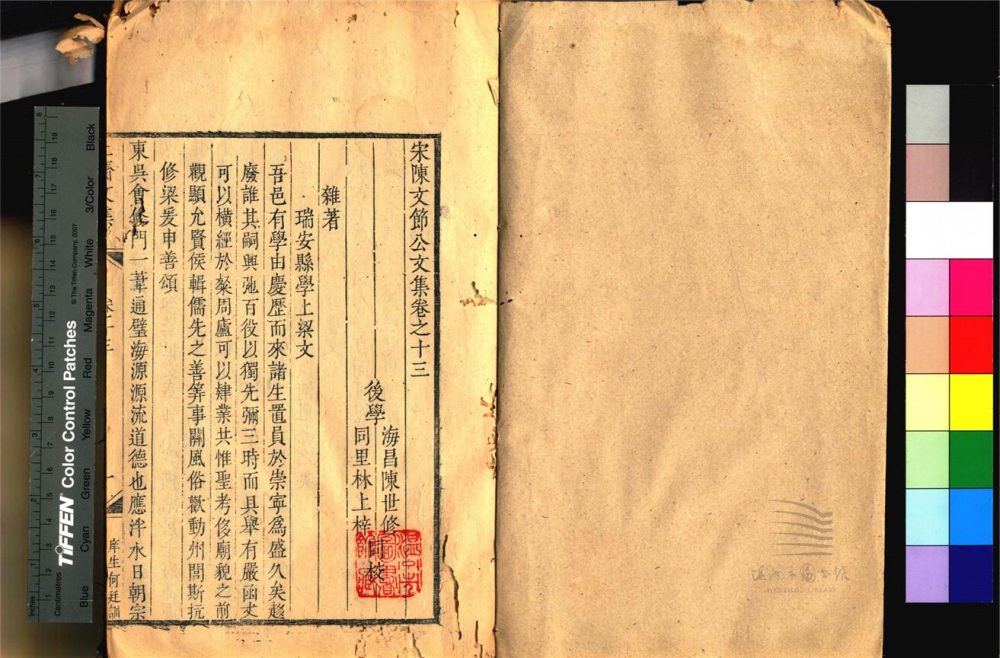 宋陳文節公文集卷之十三
後學
海昌陳世修
同里林上梓
同校
雜著
瑞安縣學上梁文
吾邑有學由慶歷而來諸生置員於崇寧爲盛久矣趍
廢誰其嗣興弛百役以獨先彌三時而具舉有嚴函丈
可以橫經於粲周廬可以肄業共惟聖考俊廟貌之前
觀顯允賢侯輯儒先之善筭事關風俗歡動州閭斯抗
修梁爰申善頌
東吳會
門一葦通璧海源源流道德也應泮水日朝宗
庠生何廷訓
卷十三
TIFFEN Color Control Patches
© The Tiffen Company, 2007
Inches
Centimetres
Blue
Cyan
Green
Yellow
Red
Magenta
White
3/Color
Black
溫州市圖書館
WENZHOU LIBRARY